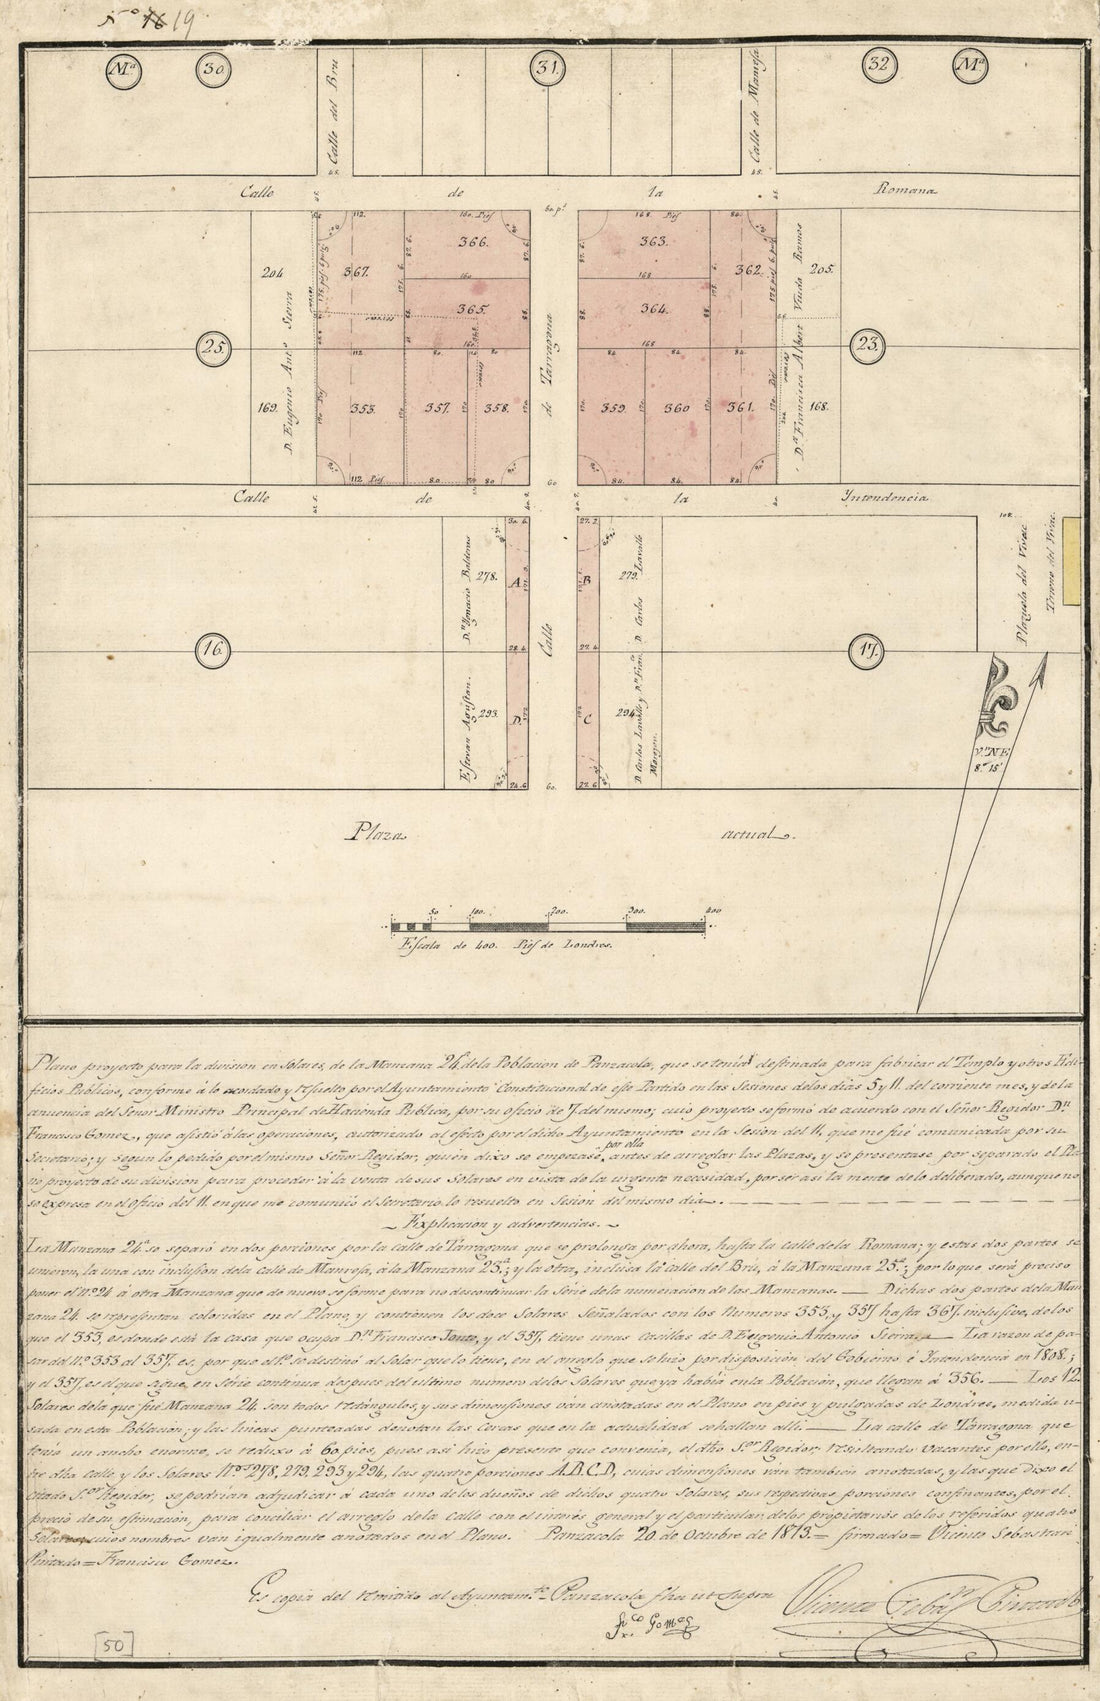 Nº 19
Mª
30
31
32
Mª
Calle del Bru
Calle de Manresa
Calle de la Romana
60. pˢ
112.
160. Pies
168. Pies
84.
204
367.
366.
363.
362.
205.
365.
364.
25.
23.
D. Eugenio Antº Sierra
Calle de Tarragona
Dª Francisca Alben Viuda Ramos
169.
353.
357.
358.
359.
360
361.
168.
112 Pies
80
80
84.
84.
84.
60
Calle de la Intendencia
30. 6.
27. 2.
Dⁿ Ygnacio Baldenas
278.
A
B
279.
D. Carlos Lavalle
Plazuela del Vivac
Terreno del Vivac
16.
28. 4.
27. 4.
17.
Estevan Agustan.
293.
D.
C
294
D. Carlos Lavalle y Dⁿ Franᶜᵒ Moreyon.
24. 6
60.
27. 6
Vⁿ NE
8.º 15'
Plaza actual.
50 100. 200. 300. 400
Escala de 400. Pies de Londres.
Plano proyecto para la division en Solares, de la Manzana 24ª de la Poblacion de Panzacola, que se tenia destinada para fabricar el Templo y otros Edi-
ficios Publicos, conforme á lo acordado y resuelto por el Ayuntamiento Constitucional de esse Partido en las Sesiones de los dias 5 y 11. del corriente mes, y de la
anuencia del Señor Ministro Principal de Hacienda Publica, por su oficio de 7 del mismo; cuio proyecto se formó de acuerdo con el Señor Regidor Dⁿ
Francisco Gomez, que asistió á las operaciones, autorizado al efecto por el dicho Ayuntamiento en la Sesion del 11, que me fué comunicada por su
Secretario; y segun lo pedido por el mismo Señor Regidor, quien dixo se empezase por ella antes de arreglar las Plazas, y se presentase por separado el Pla-
no proyecto de su division para proceder á la venta de sus Solares en vista de la urgente necesidad, por ser asi la mente de lo deliberado, aunque no
se expresa en el oficio del 11. en que me comunicó el Secretario lo resuelto en Sesion del mismo dia.
Explicacion y advertencias.
La Manzana 24ª se separó en dos porciones por la calle de Tarragona que se prolonga por ahora, hasta la calle de la Romana; y estas dos partes se
unieron, la una con inclusion de la calle de Manresa, á la Manzana 23ª; y la otra, inclusa la calle del Brú, á la Manzana 25ª; por lo que será preciso
poner el Nº 24 á otra Manzana que de nuevo se forme para no descontinuar la Série de la numeracion de las Manzanas. — Dichas dos partes de la Man-
zana 24. se representan coloridas en el Plano, y contienen los doce Solares Señalados con los Numeros 353, y 357 hasta 367. inclusive, de los
que el 353, es donde está la casa que ocupa Dⁿ Francisco y el 357, tiene unas casillas de D. Eugenio Antonio Sierra. — La razon de pa-
sar del Nº 353 al 357. es, por que el 1º se destinó al Solar que lo tiene, en el arreglo que se hizo por disposicion del Gobierno é Intendencia en 1808;
y el 357, es el que sigue en série continua despues del ultimo numero de los Solares que ya habia en la Poblacion, que llegan á 356. — Los 12.
Solares de la que fué Manzana 24 son todos rectángulos, y sus dimensiones ván anotadas en el Plano en pies y pulgadas de Londres, medida u-
sada en esta Poblacion; y las lineas punteadas denotan las Cercas que en la actualidad se hallan alli. — La calle de Tarragona que
tenia un ancho enorme, se reduxo á 60 pies, pues asi hizo presente que convenia, el dho. Sᵒʳ Regidor; resultando vacantes por ello, en-
tre dha calle y los Solares Nᵒˢ 278, 279, 293 y 294, las quatro porciones A.B.C.D, cuias dimensiones ván tambien anotadas, y las que dixo el
citado Sᵒʳ Regidor, se podrian adjudicar á cada uno de los dueños de dichos quatro Solares, sus respectivas porciones confinantes, por el
precio de su estimacion, para conciliar el arreglo de la calle con el interés general y el particular, de los propietarios de los referidos quatro
Solares, cuios nombres van igualmente anotados en el Plano. Panzacola 20 de Octubre de 1813. = firmado = Vicente Sebastian
Pintado = Francisco Gomez.
Es copia del remitido al Ayuntamᵗᵒ Panzacola fha ut supra
Vicente Sebⁿ Pintado
Fᶜᵒ Gomez
[50]